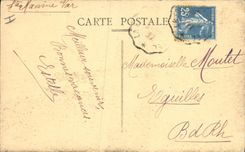 Ste Maxime Var
CARTE POSTALE
Meilleurs souvenirs
Bonnes vacances
Estelle
25
Mademoiselle Moutet
Eguilles
B d Rh